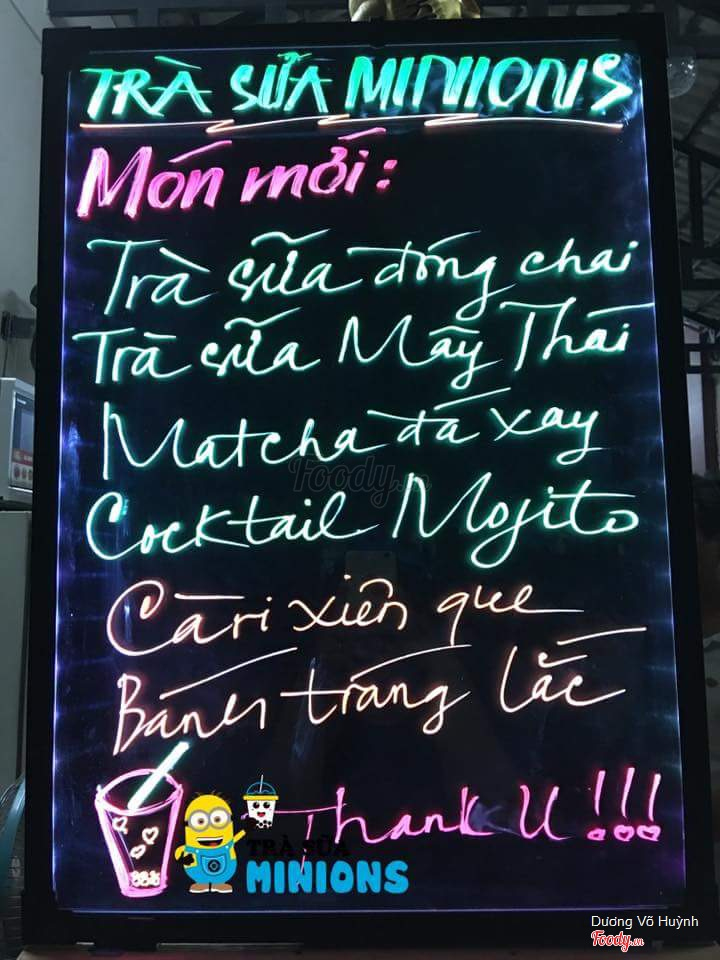 TRÀ SỮA MINIONS
Món mới:
Trà sữa đóng chai
Trà sữa Mây Thái
Matcha đá xay
Cocktail Mojito
Cà ri xiên que
Bánh tráng lắc
Thank U!!!
TRÀ SỮA
MINIONS
Foody.vn
Dương Võ Huỳnh
Foody.vn